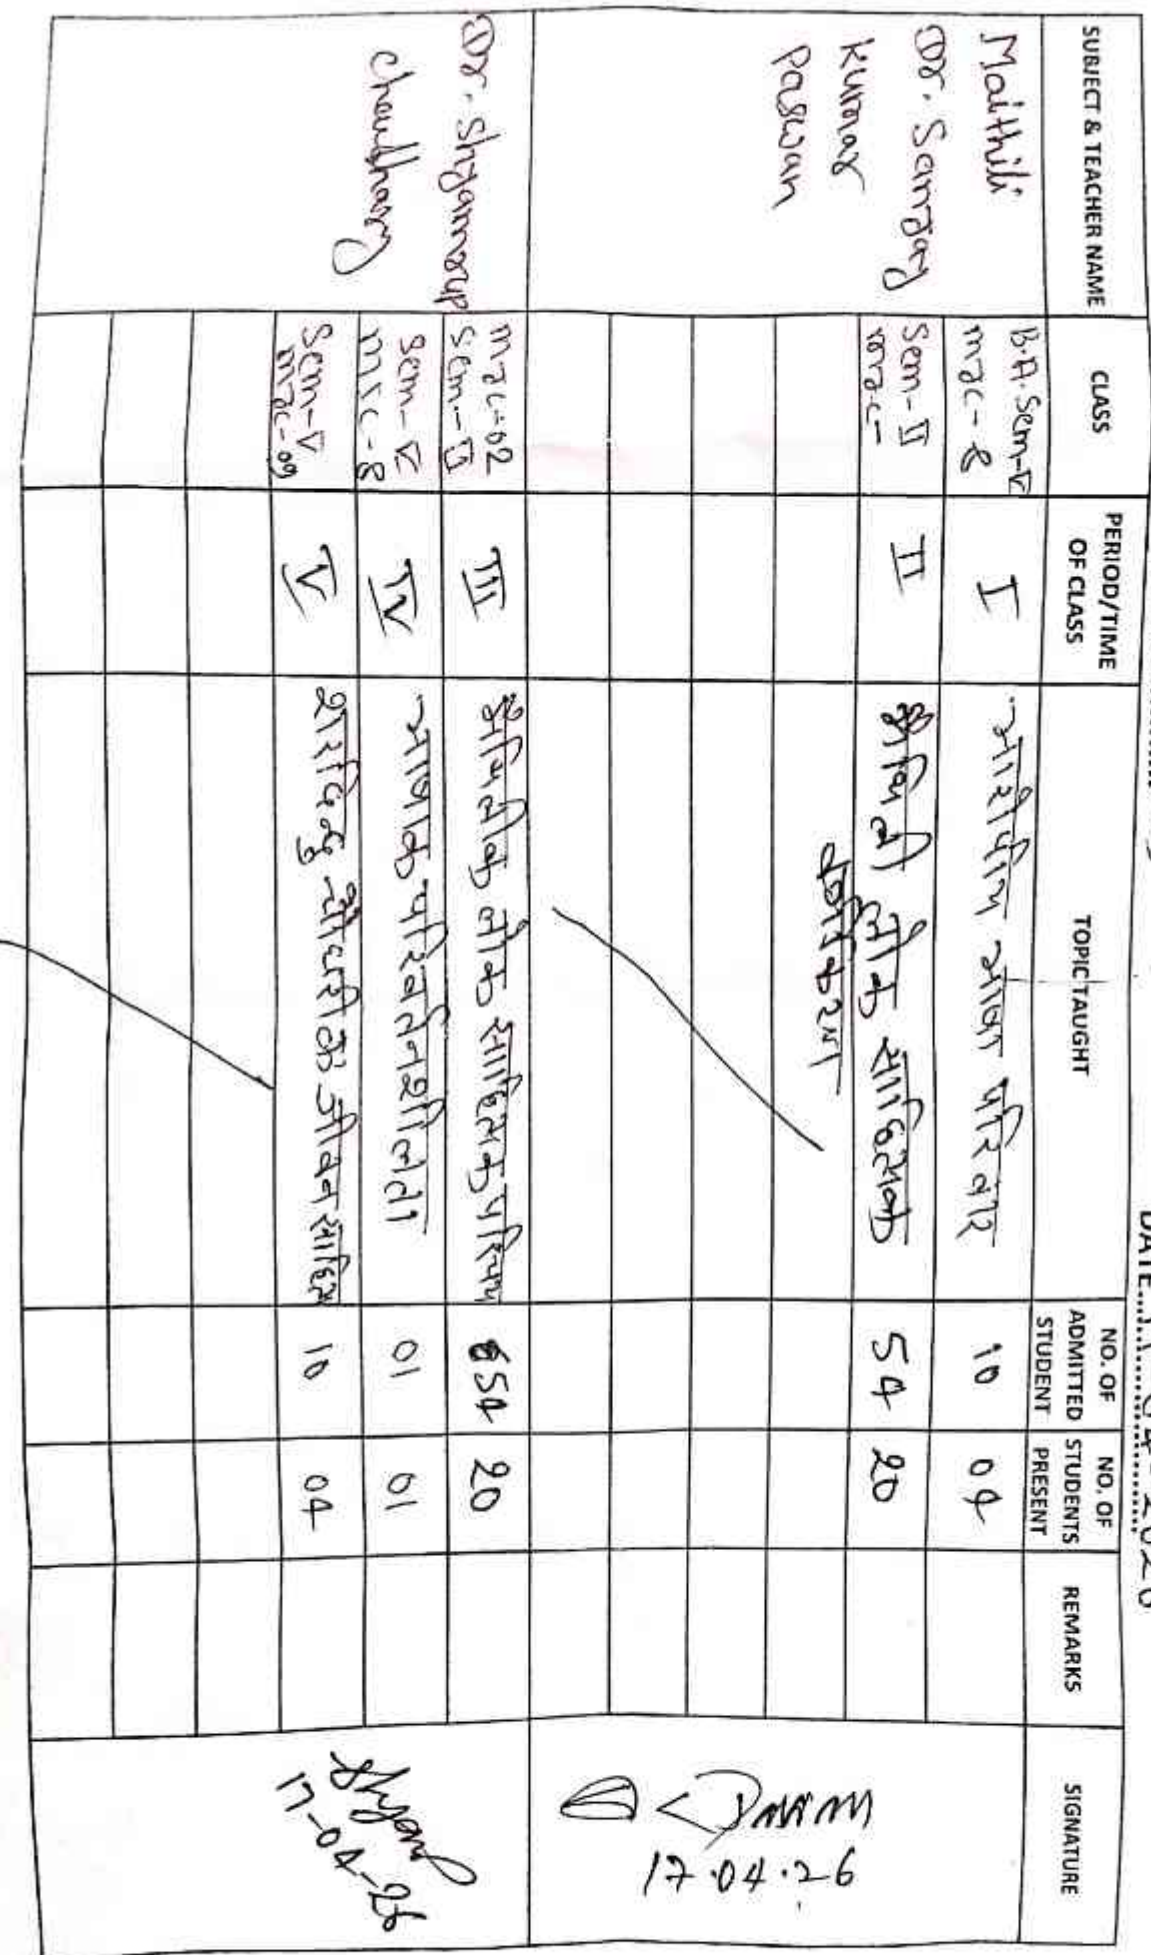 DATE
SUBJECT & TEACHER NAME
CLASS
PERIOD/TIME OF CLASS
TOPIC TAUGHT
NO. OF ADMITTED STUDENT
NO. OF STUDENTS PRESENT
REMARKS
SIGNATURE
Maithili
Dr. Sanjay
Kumar
Paswan
B.A. Sem-V
MJC-8
I
भारोपीय भाषा परिवार
10
04
Sem-II
MJC-
II
मैथिली लोक साहित्यक
वर्गीकरण
54
20
17.04.26
Dr. Shyamrup
Chaudhary
MJC-02
Sem-II
III
मैथिलीक लोक साहित्यक परिचय
54
20
Sem-V
MIC-8
IV
भाषाक परिवर्तनशीलता
01
01
Sem-V
MJC-09
V
शरदिन्दु चौधरीक जीवन साहित्य
10
04
Shyam
17-04-26